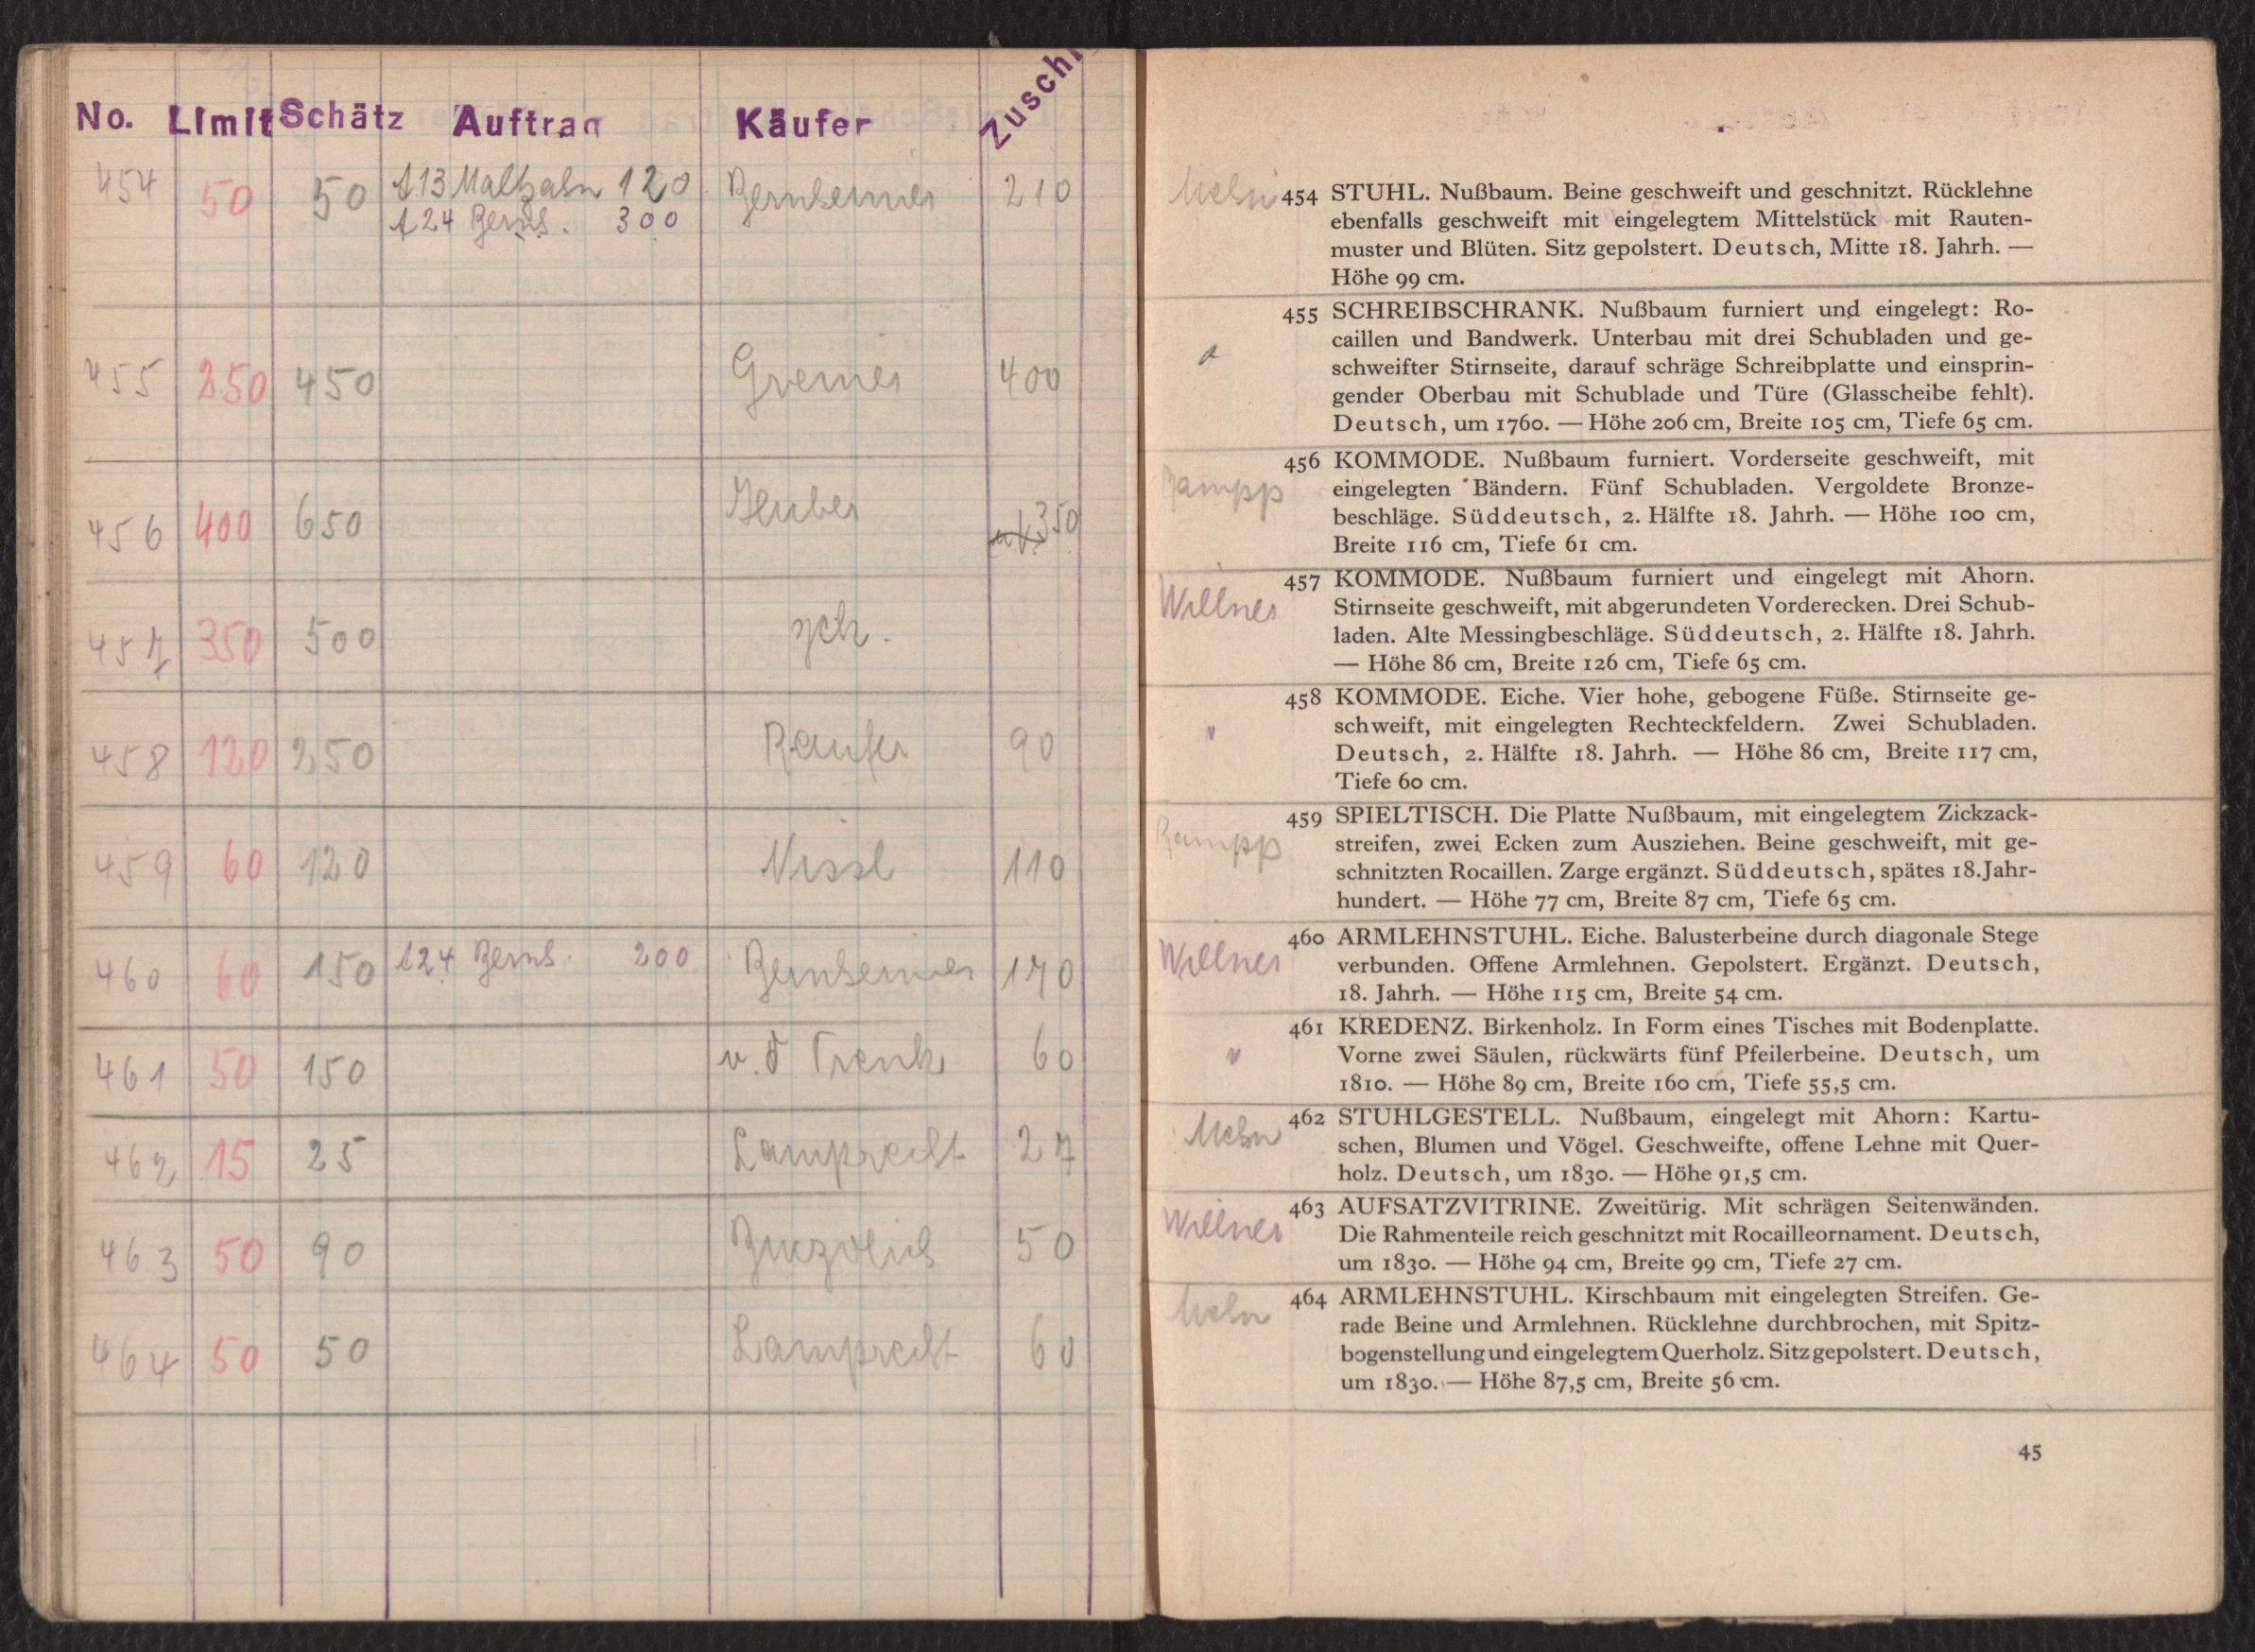 No. Limit Schätz Auftrag Käufer Zuschl
454 50 50 113 Maltzahn 120 Bernheimer 210
124 Bernh. 300
455 250 450 400
456 400 650 Huber 350
457 350 500
458 120 250 90
459 60 120 Nissl 110
460 60 150 124 Bernh. 200 Bernheimer 170
461 50 150 v. d Trenk 60
462 15 25 Lamprecht 27
463 50 90 50
464 50 50 Lamprecht 60
454 STUHL. Nußbaum. Beine geschweift und geschnitzt. Rücklehne
ebenfalls geschweift mit eingelegtem Mittelstück mit Rauten-
muster und Blüten. Sitz gepolstert. Deutsch, Mitte 18. Jahrh. —
Höhe 99 cm.
455 SCHREIBSCHRANK. Nußbaum furniert und eingelegt: Ro-
caillen und Bandwerk. Unterbau mit drei Schubladen und ge-
schweifter Stirnseite, darauf schräge Schreibplatte und einsprin-
gender Oberbau mit Schublade und Türe (Glasscheibe fehlt).
Deutsch, um 1760. — Höhe 206 cm, Breite 105 cm, Tiefe 65 cm.
456 KOMMODE. Nußbaum furniert. Vorderseite geschweift, mit
Rampp eingelegten Bändern. Fünf Schubladen. Vergoldete Bronze-
beschläge. Süddeutsch, 2. Hälfte 18. Jahrh. — Höhe 100 cm,
Breite 116 cm, Tiefe 61 cm.
457 KOMMODE. Nußbaum furniert und eingelegt mit Ahorn.
Willner Stirnseite geschweift, mit abgerundeten Vorderecken. Drei Schub-
laden. Alte Messingbeschläge. Süddeutsch, 2. Hälfte 18. Jahrh.
— Höhe 86 cm, Breite 126 cm, Tiefe 65 cm.
458 KOMMODE. Eiche. Vier hohe, gebogene Füße. Stirnseite ge-
schweift, mit eingelegten Rechteckfeldern. Zwei Schubladen.
Deutsch, 2. Hälfte 18. Jahrh. — Höhe 86 cm, Breite 117 cm,
Tiefe 60 cm.
459 SPIELTISCH. Die Platte Nußbaum, mit eingelegtem Zickzack-
Rampp streifen, zwei Ecken zum Ausziehen. Beine geschweift, mit ge-
schnitzten Rocaillen. Zarge ergänzt. Süddeutsch, spätes 18. Jahr-
hundert. — Höhe 77 cm, Breite 87 cm, Tiefe 65 cm.
460 ARMLEHNSTUHL. Eiche. Balusterbeine durch diagonale Stege
Willner verbunden. Offene Armlehnen. Gepolstert. Ergänzt. Deutsch,
18. Jahrh. — Höhe 115 cm, Breite 54 cm.
461 KREDENZ. Birkenholz. In Form eines Tisches mit Bodenplatte.
Vorne zwei Säulen, rückwärts fünf Pfeilerbeine. Deutsch, um
1810. — Höhe 89 cm, Breite 160 cm, Tiefe 55,5 cm.
462 STUHLGESTELL. Nußbaum, eingelegt mit Ahorn: Kartu-
schen, Blumen und Vögel. Geschweifte, offene Lehne mit Quer-
holz. Deutsch, um 1830. — Höhe 91,5 cm.
Willner 463 AUFSATZVITRINE. Zweitürig. Mit schrägen Seitenwänden.
Die Rahmenteile reich geschnitzt mit Rocailleornament. Deutsch,
um 1830. — Höhe 94 cm, Breite 99 cm, Tiefe 27 cm.
464 ARMLEHNSTUHL. Kirschbaum mit eingelegten Streifen. Ge-
rade Beine und Armlehnen. Rücklehne durchbrochen, mit Spitz-
bogenstellung und eingelegtem Querholz. Sitz gepolstert. Deutsch,
um 1830. — Höhe 87,5 cm, Breite 56 cm.
45